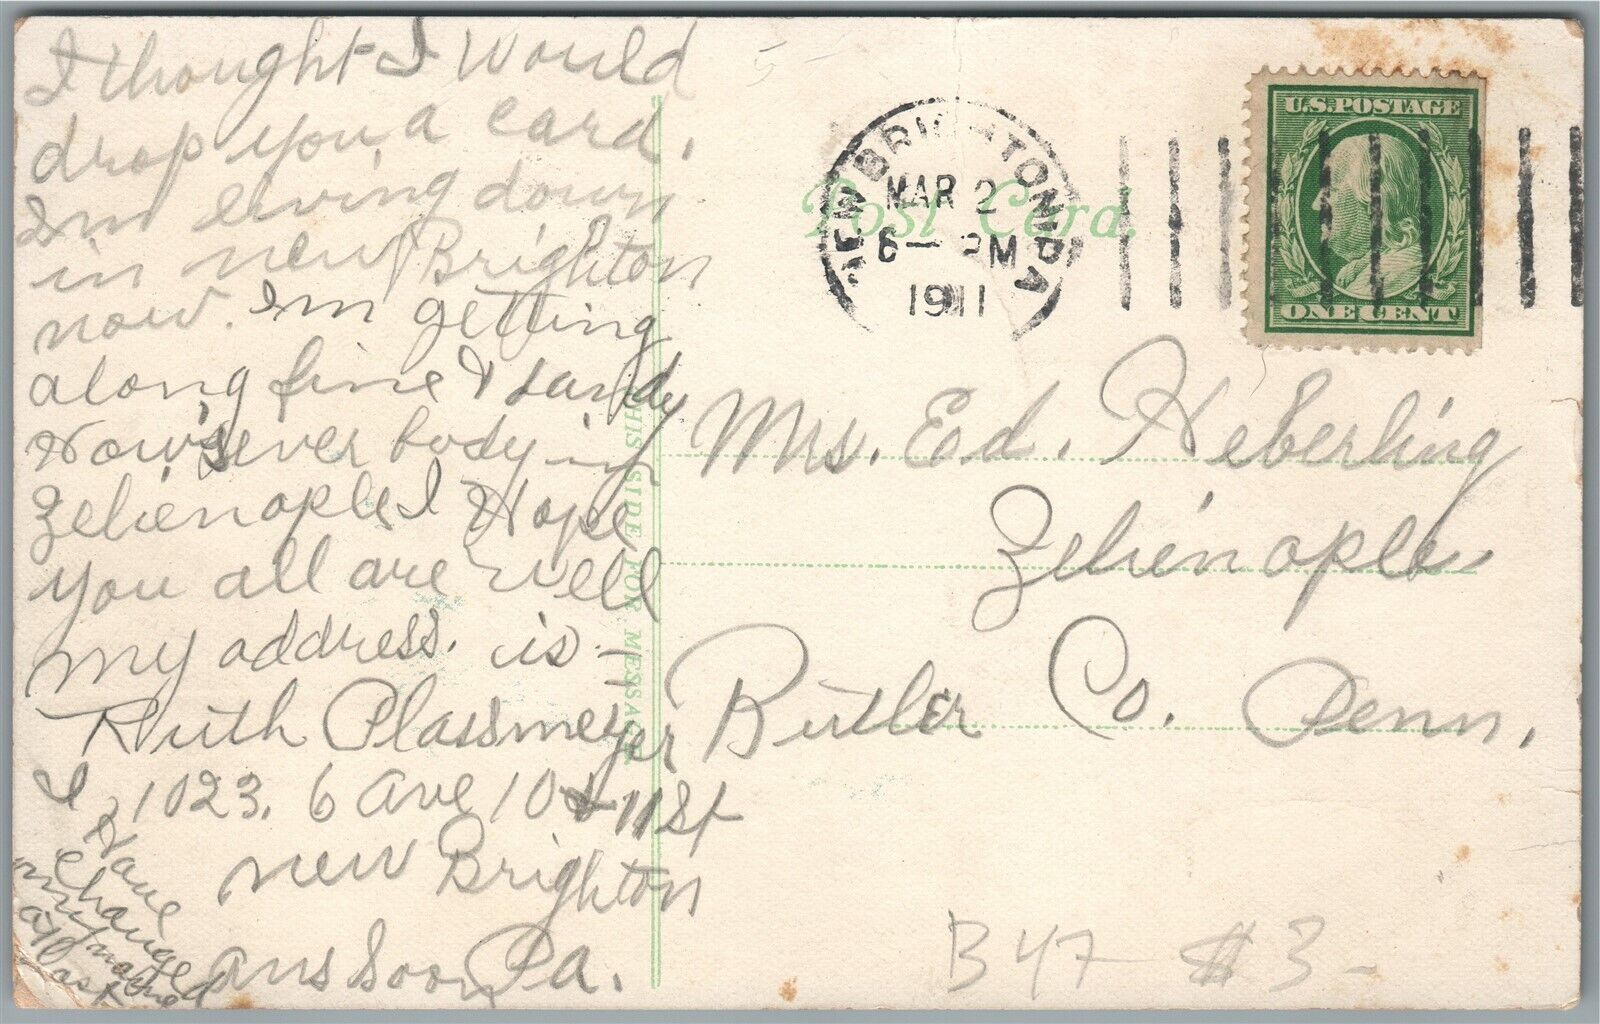 I thought I Would
drop you a card.
Im living down
in new Brighton
now. Im getting
along fine & dandy
How's ever body in
Zelienople I Hope
you all are well
my address. is -
Ruth Plassmeyer
1023. 6 ave 10 & 11 St
new Brighton
ans soon Pa.
I
Have
Change
my
Post Card.
NEW BRIGHTON, PA
MAR 2
6 - PM
1911
U.S. POSTAGE
ONE CENT
THIS SIDE FOR MESSAGE
Mrs. Ed. Heberling
Zelienople
Butler Co. Penn.
B47 $3-
5-